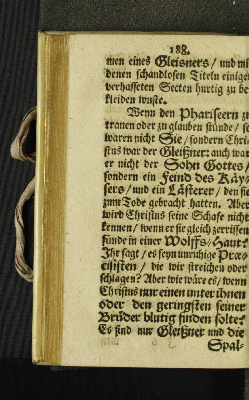 188.
men eines Gleisners / und mi
denen schandlosen Titeln einige
verhasseten Secten hurtig zu be
kleiden wuste.
Wenn den Phariseern zu
trauen oder zu glauben stünde / so
waren nicht Sie / sondern Chri-
stus war der Gleißner: auch war
er nicht der Sohn Gottes /
sondern ein Feind des Käy-
sers / und ein Lästerer / den sie
zum Tode gebracht hatten. Aber
wird Christus seine Schafe nicht
kennen / wenn er sie gleich zerrissen
fünde in einer Wolffs-Haut?
Ihr sagt / es seyn unruhige Præ-
cisisten / die wir streichen oder
schlagen? Aber wie wäre es / wenn
Christus nur einen unter ihnen
oder den geringsten seiner
Brüder blutig finden solte?
Es sind nur Gleißner und die
Spal-